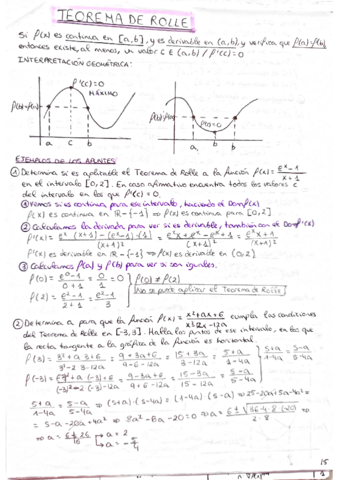 TEOREMA DE ROLLE
Si f(x) es continua en [a,b], y es derivable en (a,b), y verifica que f(a)=f(b)
entonces existe, al menos, un valor c ∈ (a,b) / f'(c)=0
INTERPRETACIÓN GEOMÉTRICA:
f'(c)=0
MÁXIMO
f(a)=f(b)
f(a)=f(b)
f'(c)=0
a c b
a b
EJEMPLOS DE LOS APUNTES
① Determina si es aplicable el Teorema de Rolle a la función f(x)= e^x-1 / x+1
en el intervalo [0,2]. En caso afirmativo encuentra todos los valores c
del intervalo en los que f'(c)=0.
① Vemos si es continua para ese intervalo, haciendo el Dom f(x)
f(x) es continua en R-{-1} ⇒ f(x) es continua para [0,2]
② Calculamos la derivada para ver si es derivable, también con el Dom f'(x)
f'(x) es derivable en R-{-1} ⇒ f(x) es derivable en (0,2)
③ Calculamos f(a) y f(b) para ver si son iguales.
f(0) = e^0-1 / 0+1 = 0/1 = 0
f(0)≠f(2)
f(2) = e^2-1 / 2+1 = e^2-1 / 3
No se puede aplicar el Teorema de Rolle
② Determina a para que la función f(x)= cumpla las condiciones
del Teorema de Rolle en [-3,3]. Halla los puntos de ese intervalo, en los que
la recta tangente a la gráfica de la función es horizontal.
= 5-a-20a+4a² ⇒ 8a²-6a-20=0 ⇒
a = 2
a = -5/4
15